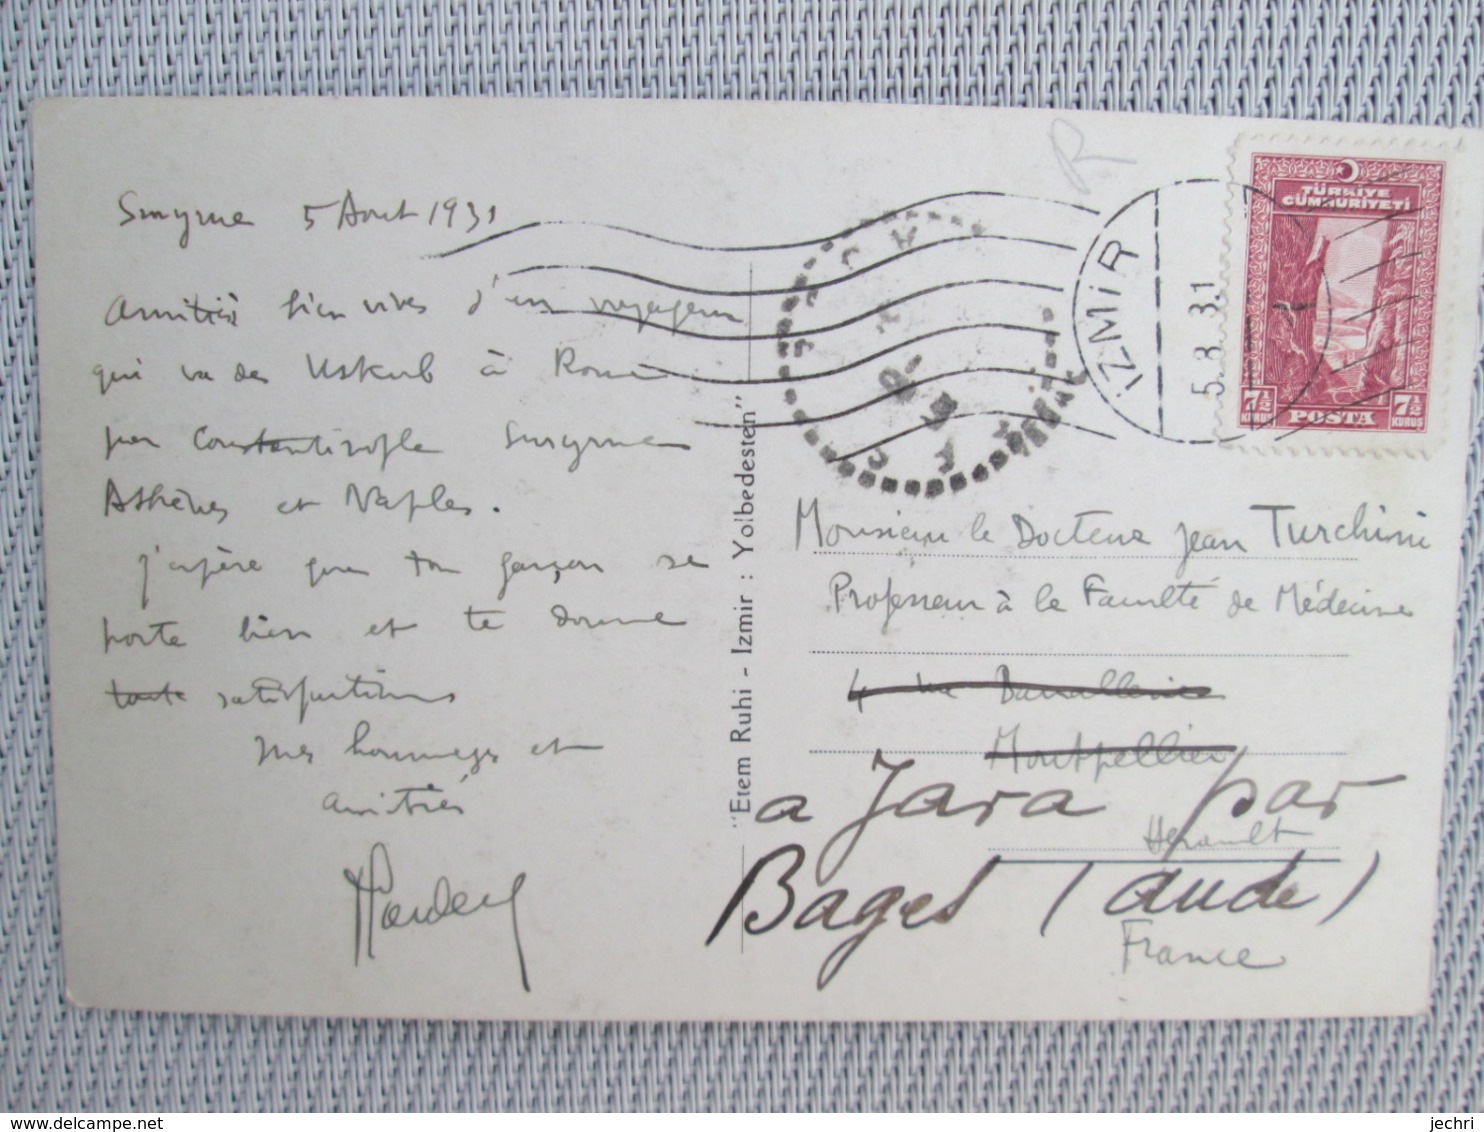 Smyrne 5 Aout 1931
Amitiés bien vives d'un voyageur
qui va de Uskub à Rome
par Constantinople Smyrne
Athènes et Naples.
j'espère que ton garçon se
porte bien et te donne
toute satisfactions
mes hommages et
amitiés
"Etem Ruhi - Izmir : Yolbedesten"
R
İZMİR
5.8.31
TÜRKİYE
CÜMHURİYETİ
7½ KURUŞ POSTA 7½ KURUŞ
Monsieur le Docteur Jean Turchini
Professeur à la Faculté de Médecine
4 rue
Montpellier
a Jara par
Herault
Bages (Aude)
France
jechri